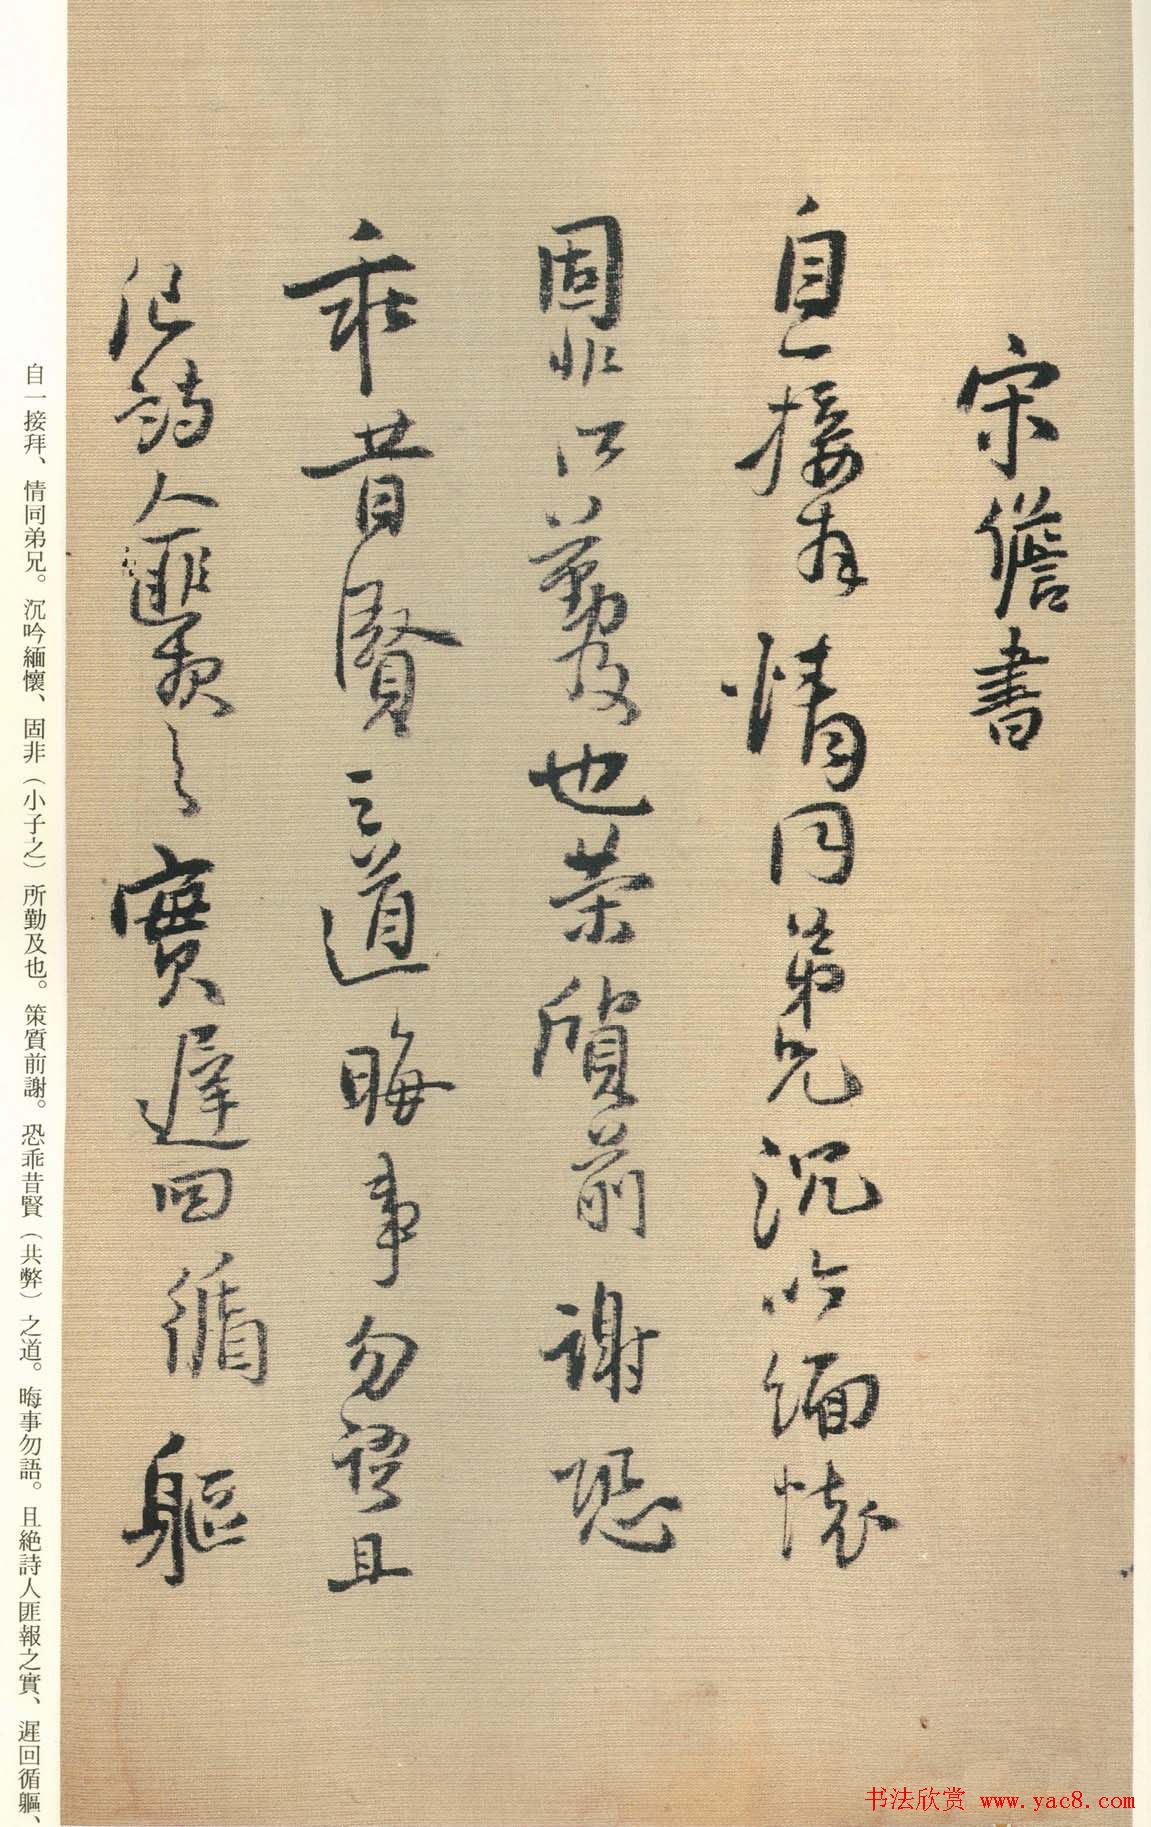 宋儋書
自一接拜情同弟兄沉吟緬懷
固非所勤及也榮質前謝恐
乖昔賢之道晦事勿語且
絕詩人匪報之實遲回循軀
自一接拜、情同弟兄。沉吟緬懷、固非（小子之）所勤及也。策質前謝。恐乖昔賢（共弊）之道。晦事勿語。且絕詩人匪報之實、遲回循軀、
书法欣赏 www.yac8.com